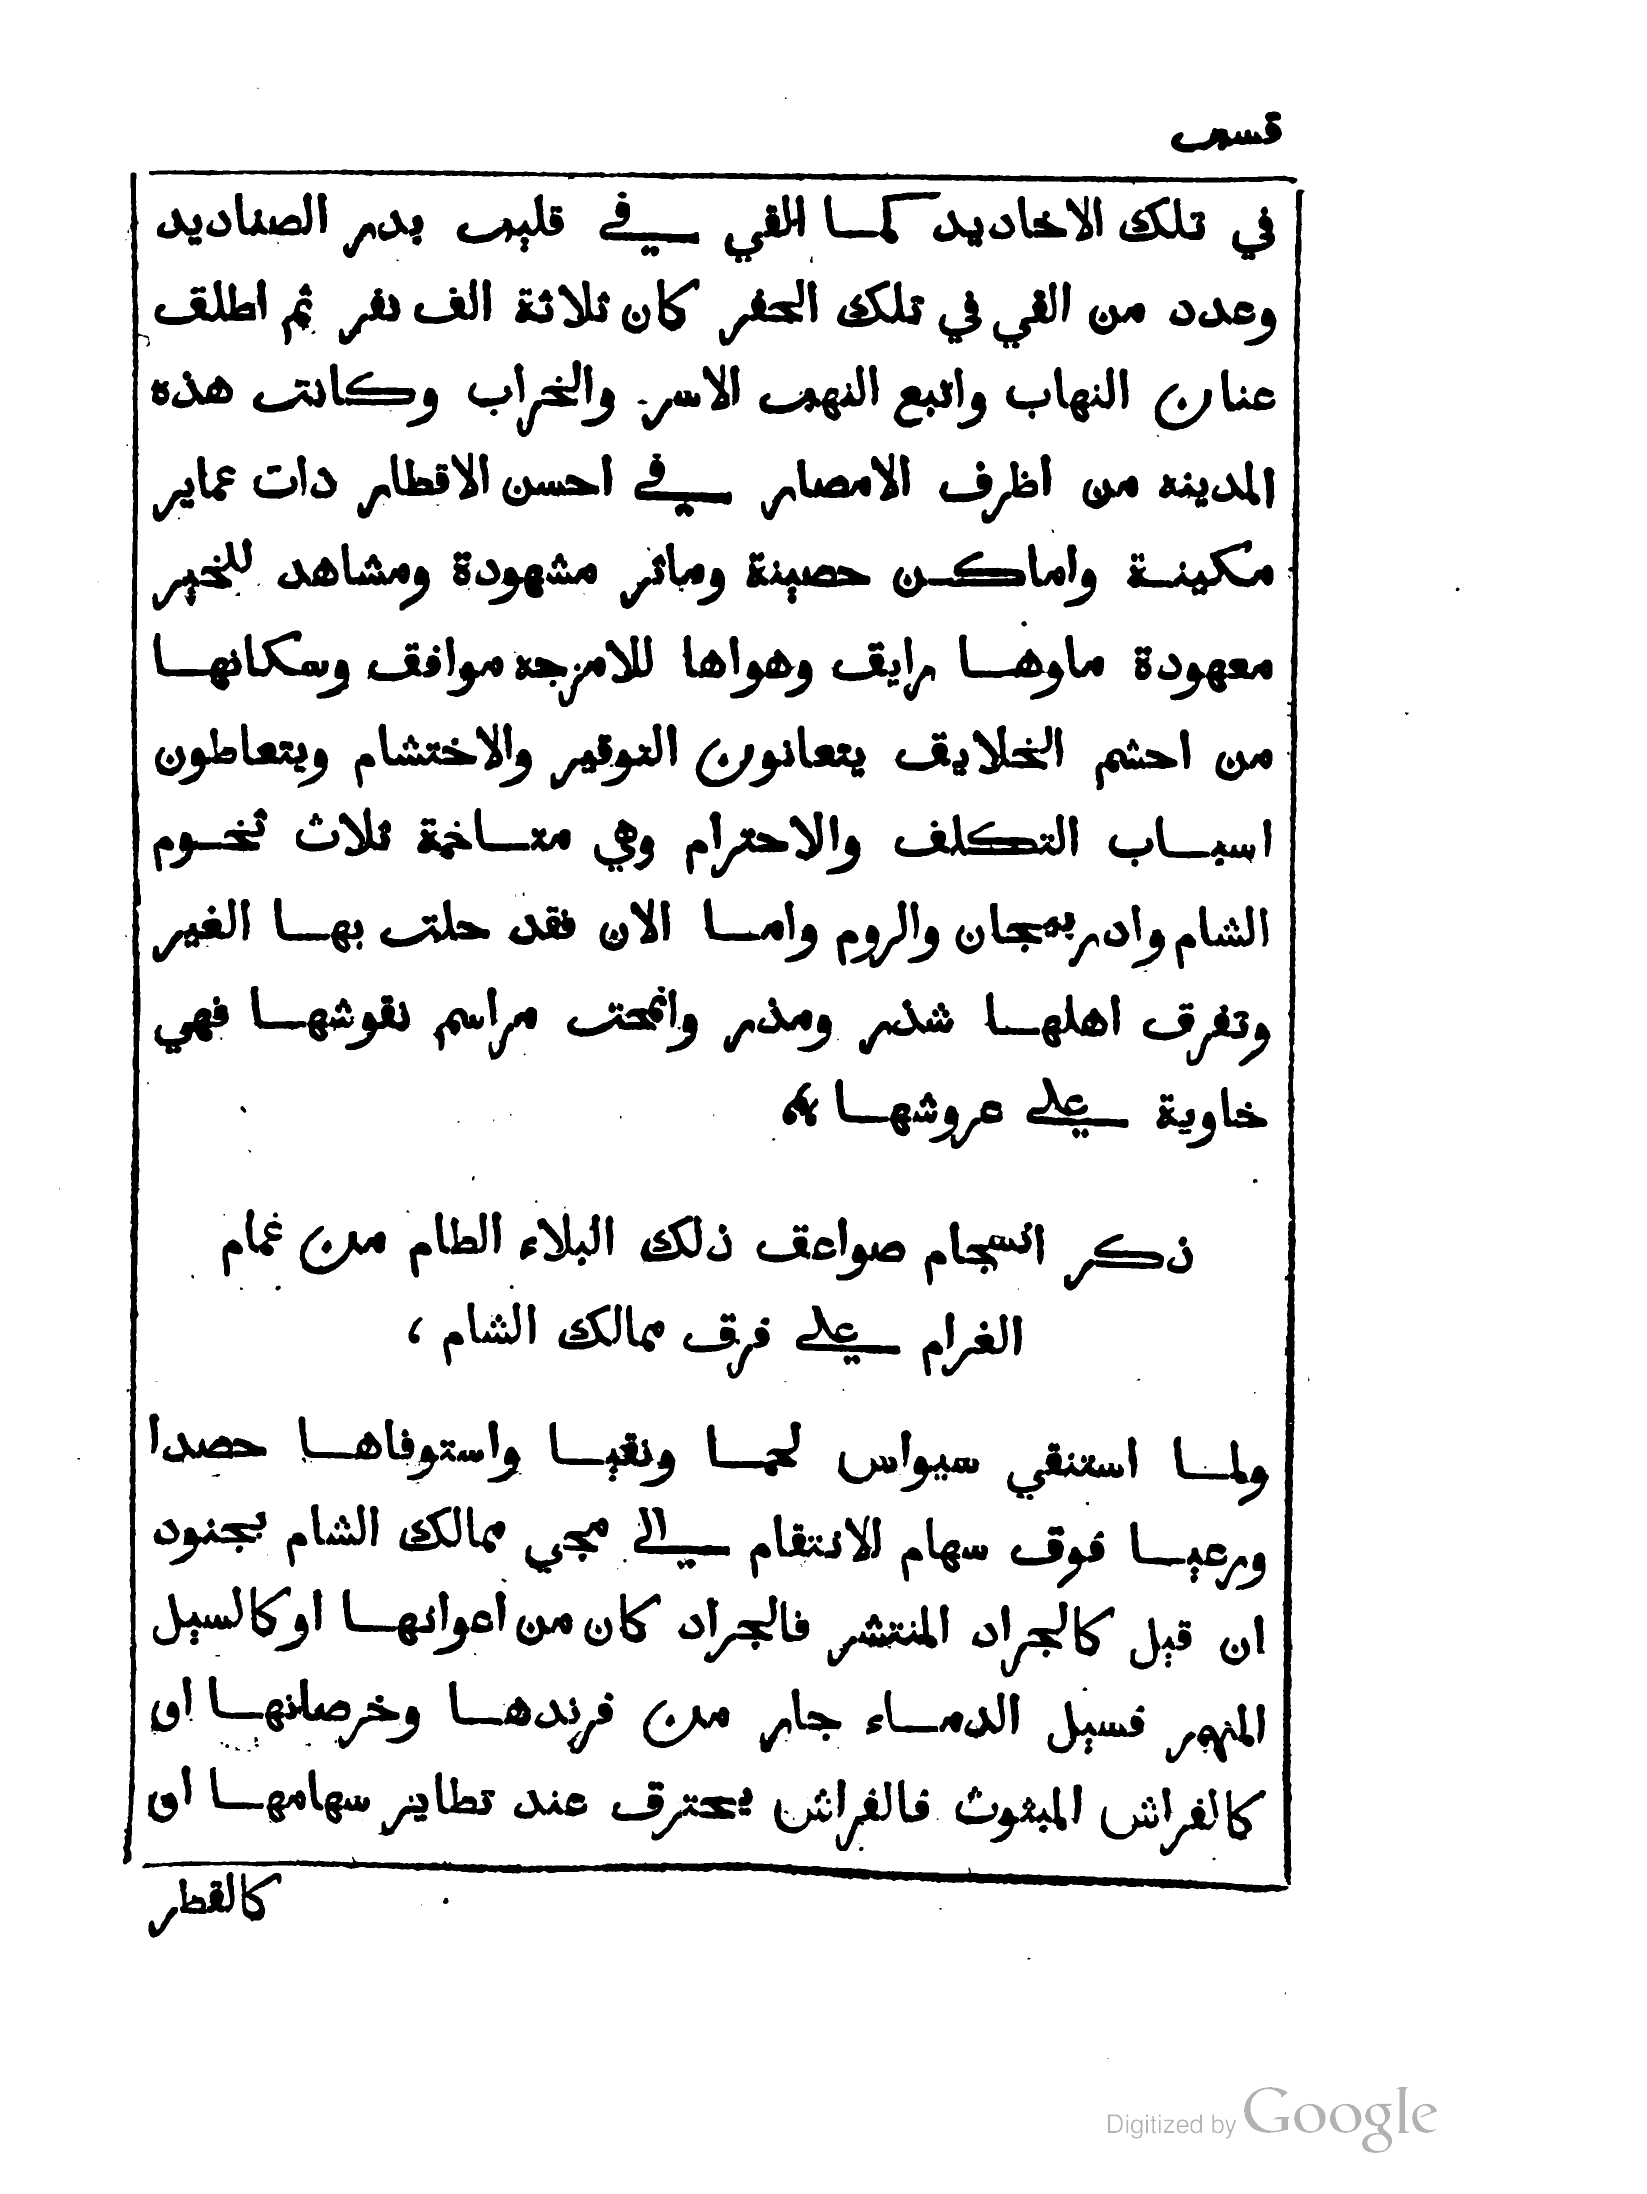 قسب
في تلك الاخاديد كما القي في قليب بدر الصناديد
وعدد من القي في تلك الحفر كان ثلاثة الف نفر ثم اطلق
عنان النهاب واتبع النهب الاسر والخراب وكانت هذه
المدينه من اظرف الامصار في احسن الاقطار دات عماير
مكينة واماكن حصينة وماثر مشهودة ومشاهد للخير
معهودة ماوها رايق وهواها للامزجه موافق وسكانها
من احشم الخلايق يتعانون التوقير والاختشام ويتعاطون
اسباب التكلف والاحترام وهي متاخمة ثلاث تخوم
الشام وادربيجان والروم واما الان فقد حلت بها الغير
وتفرق اهلها شذر ومذر وانمحت مراسم نقوشها فهي
خاوية علي عروشها
ذكر انسجام صواعق ذلك البلاء الطام من غمام
الغرام علي فرق ممالك الشام ،
ولما استنقي سيواس لحما ونقيا واستوفاها حصدا
ورعيا فوق سهام الانتقام الي مجي ممالك الشام بجنود
ان قيل كالجراد المنتشر فالجراد كان من اعوانها او كالسيل
المنهمر فسيل الدماء جار من فرندها وخرصانها او
كالفراش المبثوث فالفراش يحترق عند تطاير سهامها او
كالقطر
Digitized by Google